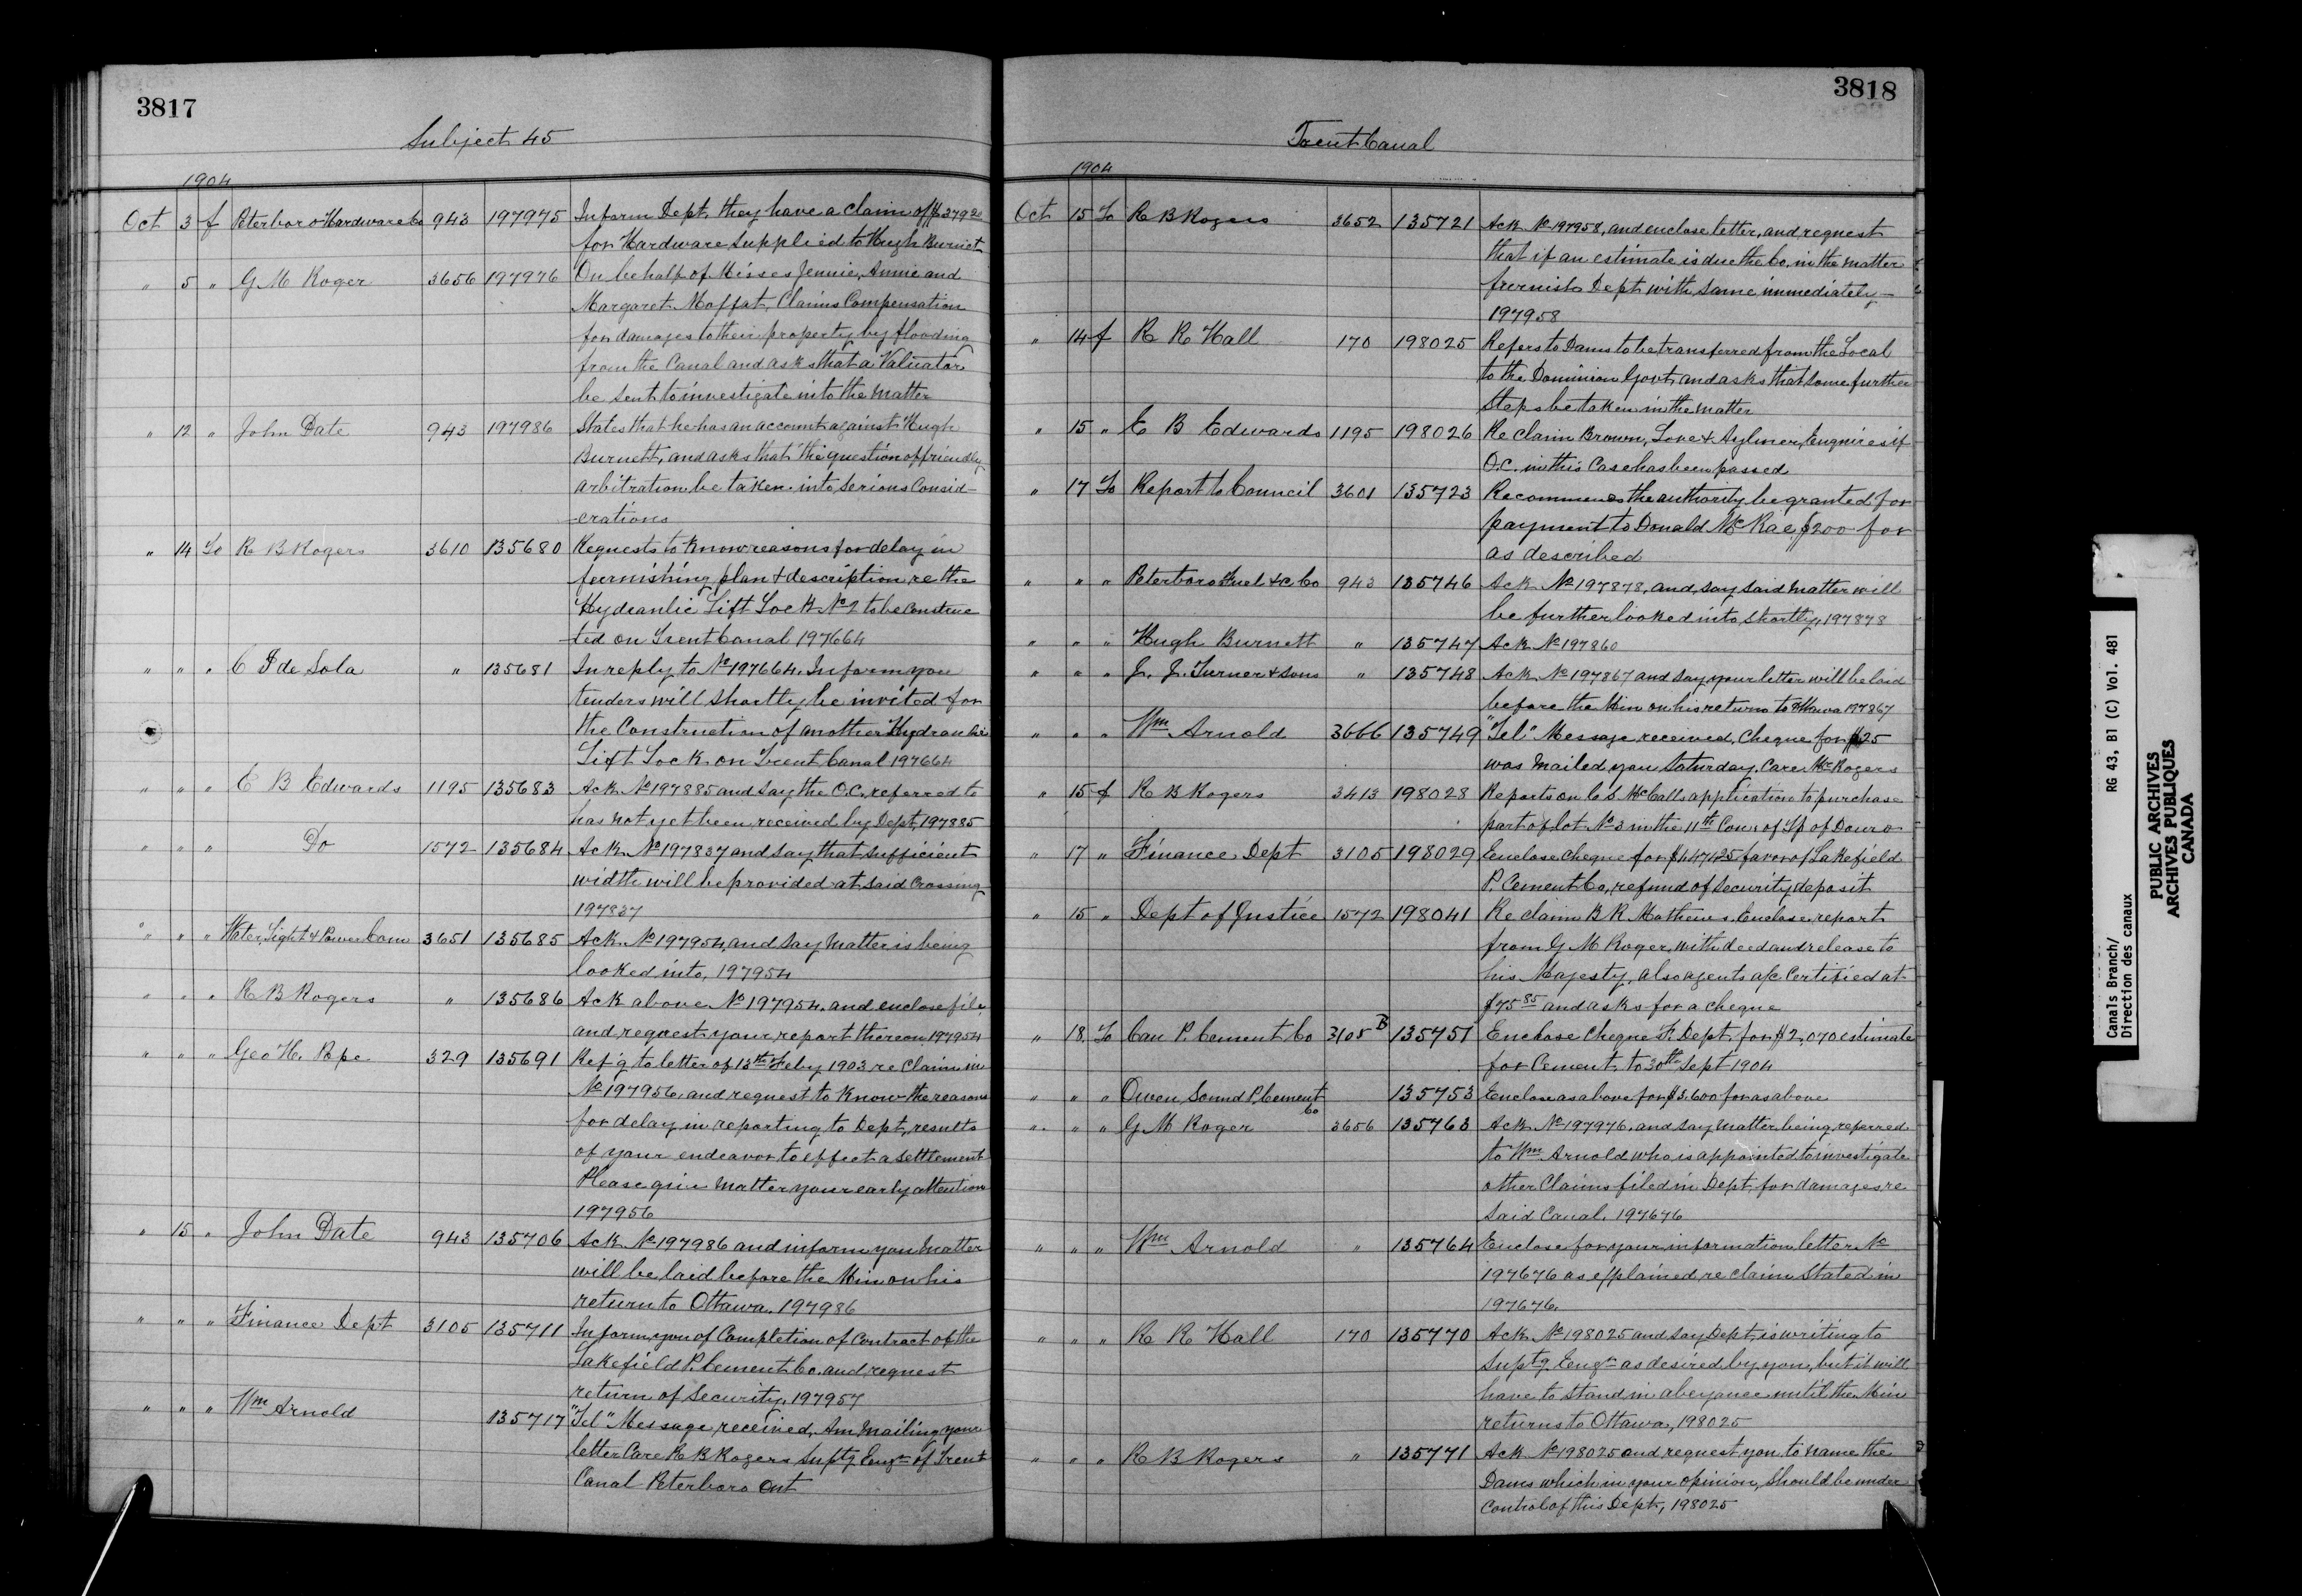 3817
Subject 45
1904
Oct 3 f Peterboro Hardware Co 943 197975 Inform Dept. they have a claim of $379.20
for Hardware supplied to Hugh Burnet
" 5 " G M Roger 3656 197976 On behalf of Misses Jennie, Annie and
Margaret Moffat, Claims Compensation
for damages to their property by flooding
from the Canal and asks that a Valuator
be sent to investigate into the matter
" 12 " John Date 943 197986 States that he has an account against Hugh
Burnett, and asks that the question of friendly
arbitration be taken into serious Consid-
-erations
" 14 To R B Rogers 3610 135680 Requests to know reasons for delay in
furnishing plan & description re the
Hydraulic Lift Lock No 2 to be construc
ted on Trent Canal 197664
" " " C I de Sola " 135681 In reply to No 197664. Inform you
tenders will shortly be invited for
the Construction of another Hydraulic
Lift Lock on Trent Canal 197664
" " " E B Edwards 1195 135683 Ack No 197885 and say the O.C. referred to
has not yet been received by Dept, 197885
" " " Do 1572 135684 Ack No 197837 and say that sufficient
width will be provided at said Crossing
197837
" " " Water, Light & Power Com 3651 135685 Ack No 197954, and say matter is being
looked into, 197954
" " " R B Rogers " 135686 Ack above No 197954. and enclose file
and request your report thereon 197954
" " " Geo H. Pope 329 135691 Ref'g to letter of 13th Feby 1903 re Claim in
No 197956 and request to know the reasons
for delay in reporting to Dept, results
of your endeavor to effect a settlement
Please give matter your early attention
197956
" 15 " John Date 943 135706 Ack No 197986 and inform you Matter
will be laid before the Min on his
return to Ottawa. 197986
" " " Finance Dept 3105 135711 Inform you of Completion of Contract of the
Lakefield P. Cement Co. and request
return of Security, 197957
" " " Wm Arnold 135717 "Tel" Message received, Am mailing your
letter Care R B Rogers Suptg Engr of Trent
Canal Peterboro Ont
3818
Trent Canal
1904
Oct 15 To R B Rogers 3652 135721 Ack No 197958, and enclose letter, and request
that if an estimate is due the Co. in the matter
furnish Dept with same immediately -
197958
" 14 f R R Hall 170 198025 Refers to Dams to be transferred from the Local
to the Dominion Govt and asks that some further
steps be taken in the matter
" 15 " E B Edwards 1195 198026 Re claim Brown, Love & Aylmer, Enquires if
O.C. in this Case has been passed
" 17 To Report to Council 3601 135723 Recommends the authority be granted for
payment to Donald McRae, $200 for
as described
" " " Peterboro Fuel &c Co 943 135746 Ack No 197878, and, say said matter will
be further looked into shortly, 197878
" " " Hugh Burnett " 135747 Ack No 197860
" " " J. J. Turner & Sons " 135748 Ack No 197867 and say your letter will be laid
before the Min on his return to Ottawa 197867
" " " Wm Arnold 3666 135749 "Tel" Message received, Cheque for $25
was mailed you Saturday. Care Mr Rogers
" 15 f R B Rogers 3413 198028 Reports on C S McCalls application to purchase
part of lot No 3 in the 11th Con: of Tp of Douro
" 17 " Finance Dept 3105 198029 Enclose cheque for $1,471.25 favor of Lakefield
P. Cement Co, refund of Security deposit
" 15 " Dept of Justice 1572 198041 Re claim B R Mathews. Enclose report
from G M Roger, with deed and release to
his Majesty, also agents a/c Certified at
$75.85 and asks for a cheque
" 18 To Can P. Cement Co 3105 B 135751 Enclose Cheque F. Dept. for $2,070 estimate
for Cement to 30th Sept 1904
" " " Owen Sound P. Cement Co 135753 Enclose as above for $3.600 for as above
" " " G M Roger 3656 135763 Ack No 197976, and say matter being referred
to Wm Arnold who is appointed to investigate
other Claims filed in Dept. for damages re
said Canal. 197676
" " " Wm Arnold " 135764 Enclose for your information letter No
197676 as explained re claim stated in
197676.
" " " R R Hall 170 135770 Ack No 198025 and say Dept, is writing to
Suptg Engr as desired by you, but it will
have to stand in abeyance until the Min
returns to Ottawa, 198025
" " " R B Rogers " 135771 Ack No 198025 and request you to name the
Dams which in your opinion, should be under
Control of this Dept, 198025
Canals Branch/ RG 43, B1 (C) Vol. 481
Direction des canaux
PUBLIC ARCHIVES
ARCHIVES PUBLIQUES
CANADA